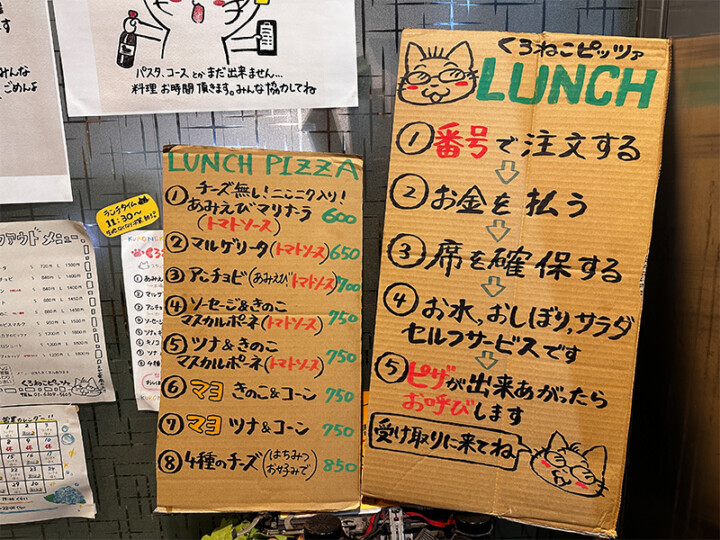 パスタ、コース とか まだ 出来ません…
料理 お時間 頂きます。みんな協力してね
みんな
ごめんよ
ランチタイム
11:30〜
LUNCH PIZZA
① チーズ無し!ニンニク入り!
あみえびマリナーラ
(トマトソース) 600
② マルゲリータ(トマトソース) 650
③ アンチョビ(あみえび トマトソース) 700
④ ソーセージ&きのこ
マスカルポーネ(トマトソース) 750
⑤ ツナ&きのこ
マスカルポーネ(トマトソース) 750
⑥ マヨ きのこ&コーン 750
⑦ マヨ ツナ&コーン 750
⑧ 4種のチーズ(はちみつお好みで) 850
くろねこピッツァ
LUNCH
① 番号で注文する
② お金を払う
③ 席を確保する
④ お水,おしぼり,サラダ
セルフサービスです
⑤ ピザが出来あがったら
お呼びします
受け取りに来てね
アウト メニュー
くろねこピッツァ